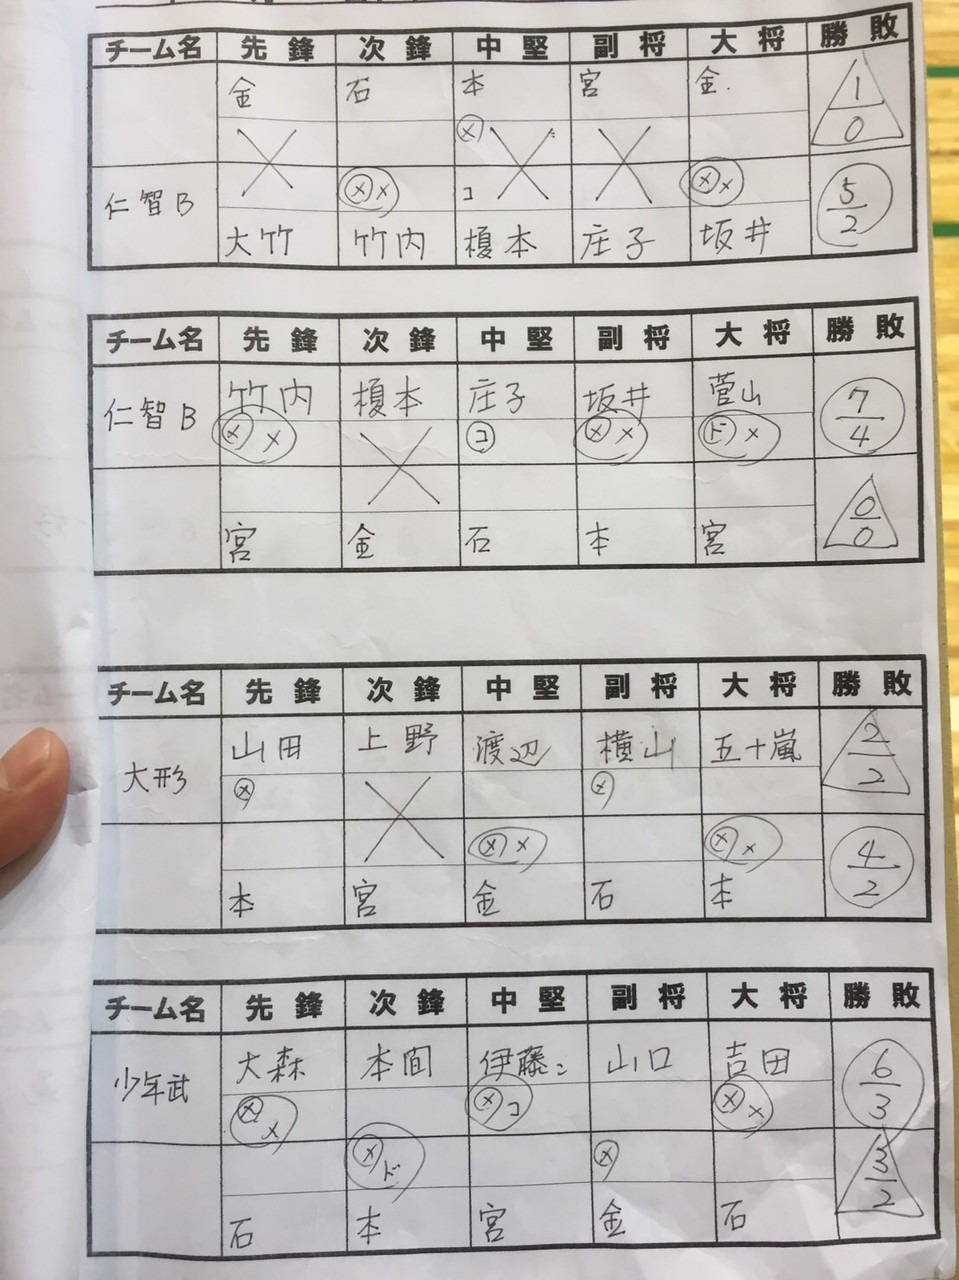 チーム名 先鋒 次鋒 中堅 副将 大将 勝敗
金 石 本 宮 金 1/0
メ
仁智B メメ コ メメ 5/2
大竹 竹内 榎本 庄子 坂井
チーム名 先鋒 次鋒 中堅 副将 大将 勝敗
仁智B 竹内 榎本 庄子 坂井 菅山 7/4
メメ コ メメ ドメ
0/0
宮 金 石 本 宮
チーム名 先鋒 次鋒 中堅 副将 大将 勝敗
大形 山田 上野 渡辺 横山 五十嵐 2/2
メ メ
メメ メメ 4/2
本 宮 金 石 本
チーム名 先鋒 次鋒 中堅 副将 大将 勝敗
少年武 大森 本間 伊藤こ 山口 吉田 6/3
メメ メコ メメ
メド メ 3/2
石 本 宮 金 石